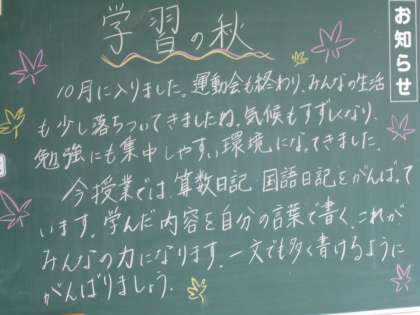 お知らせ
学習の秋
10月に入りました。運動会も終わり、みんなの生活
も少し落ちついてきましたね。気候もすずしくなり、
勉強にも集中しやすい環境になってきました。
今授業では、算数日記、国語日記をがんばって
います。学んだ内容を自分の言葉で書く、これが
みんなの力になります。一文でも多く書けるように
がんばりましょう。